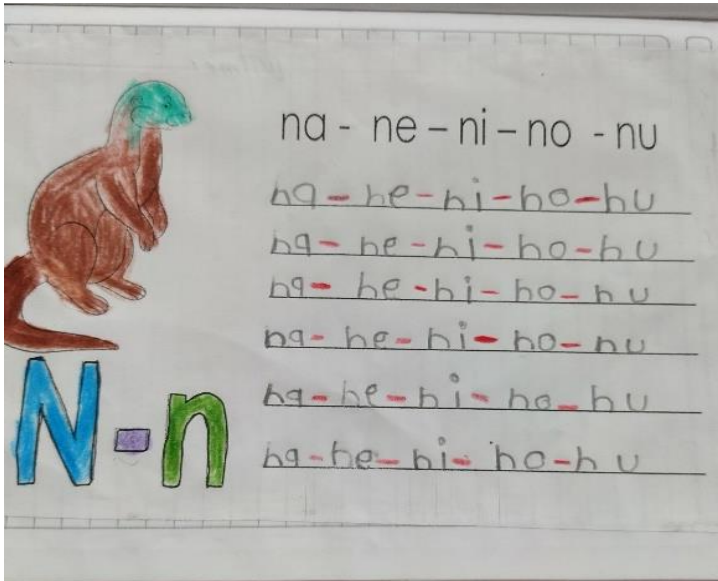 na - ne - ni - no - nu
na - ne - ni - no - nu
na - ne - ni - no - nu
na - ne - ni - no - nu
na - ne - ni - no - nu
na - ne - ni - no - nu
na - ne - ni - no - nu
N - n